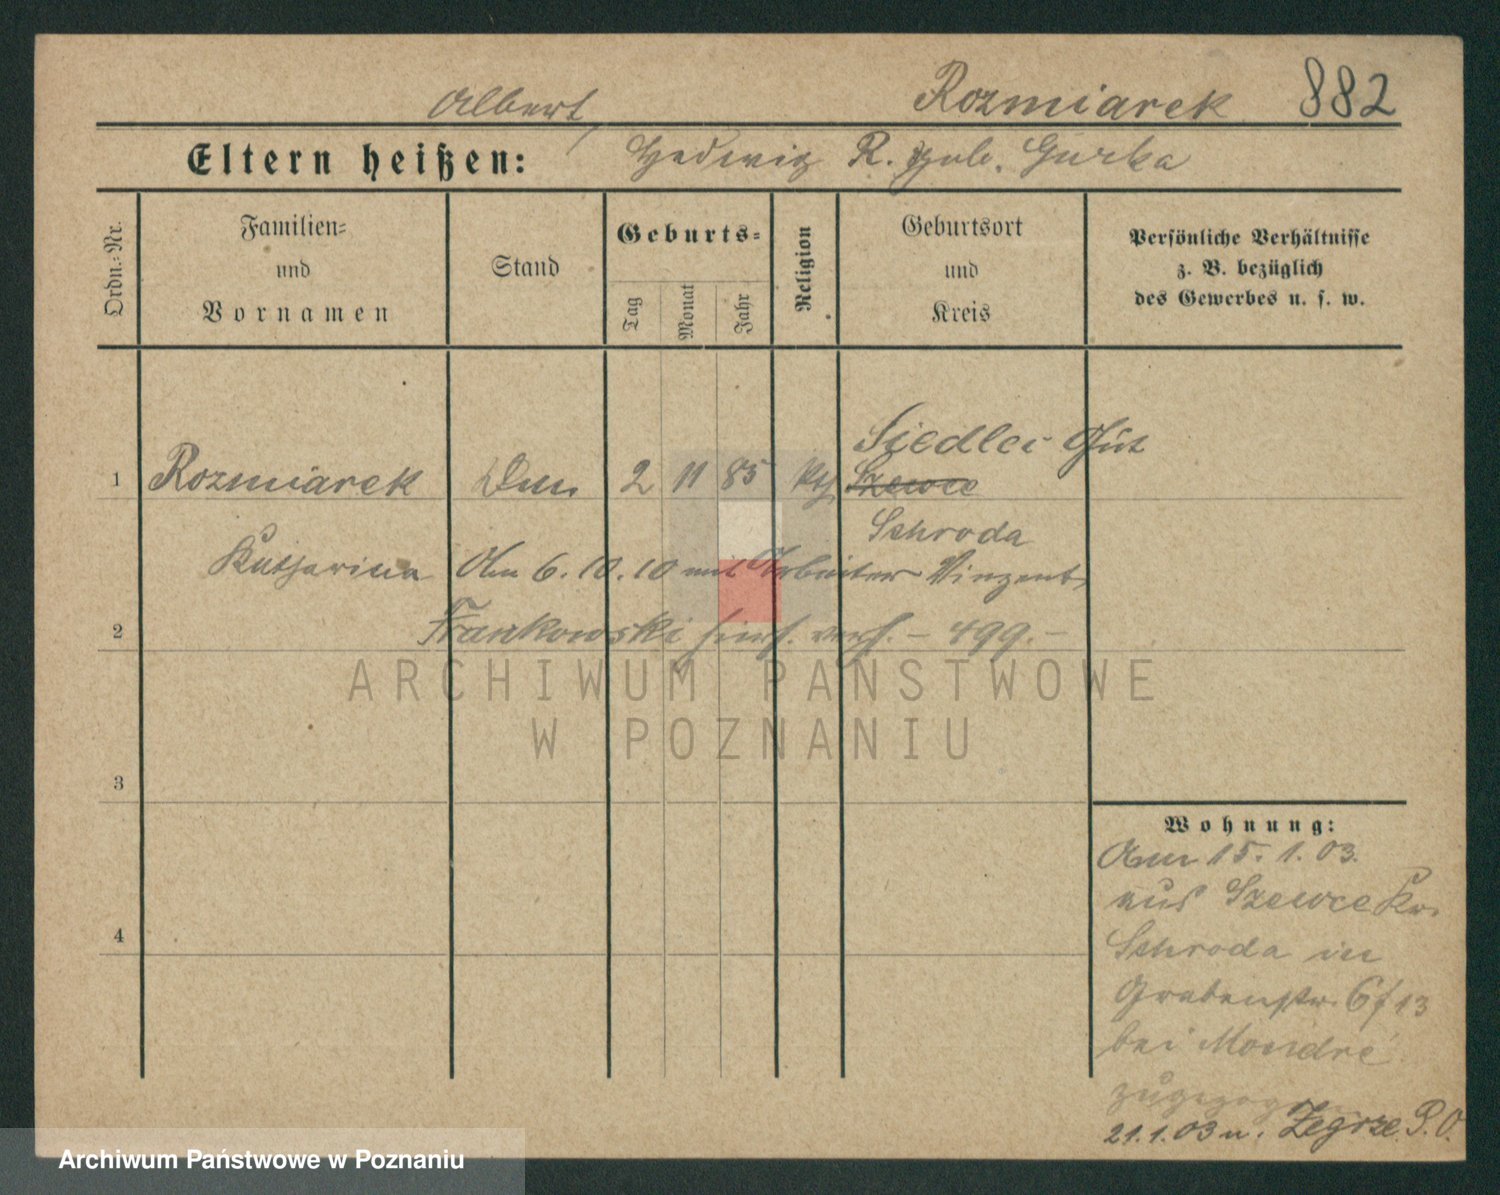 Albert, Rozmiarek 882
Eltern heißen: Hedwig R. geb. Gurka
Ordn.-Nr.
Familien-
und
Vornamen
Stand
Geburts-
Tag
Monat
Jahr
Religion
Geburtsort
und
Kreis
Persönliche Verhältnisse
z. B. bezüglich
des Gewerbes u. s. w.
Siedlec Gut
1 Rozmiarek 2 11 85 kth Szewce
Schroda
Katharina Am 6.10.10 mit Arbeiter Vinzent
2 Frankowski hiers. verh. - 499. -
ARCHIWUM PAŃSTWOWE
W POZNANIU
3
Wohnung:
Am 15.1.03.
aus Szewce Kr.
4
Schroda in
Grabenstr. 6 f 13
bei Mondré
zugezogen
21.1.03 n. Zegrze P.O.
Archiwum Państwowe w Poznaniu